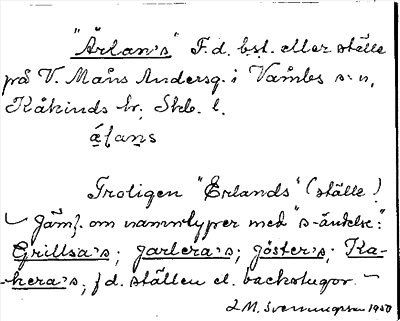 "Ärlan's" F.d. bst. eller ställe
på V. Måns Andersg. i Våmbs s:n,
Kåkinds hr; Skb. l.
Troligen "Erlands" (ställe)!
Jämf. om namntyper med "s-ändelse":
Grillsa's; Jarlera's; Jöster's; Ka-
kera's; f.d. ställen el. backstugor. –
L. M. Svenungsson 1950